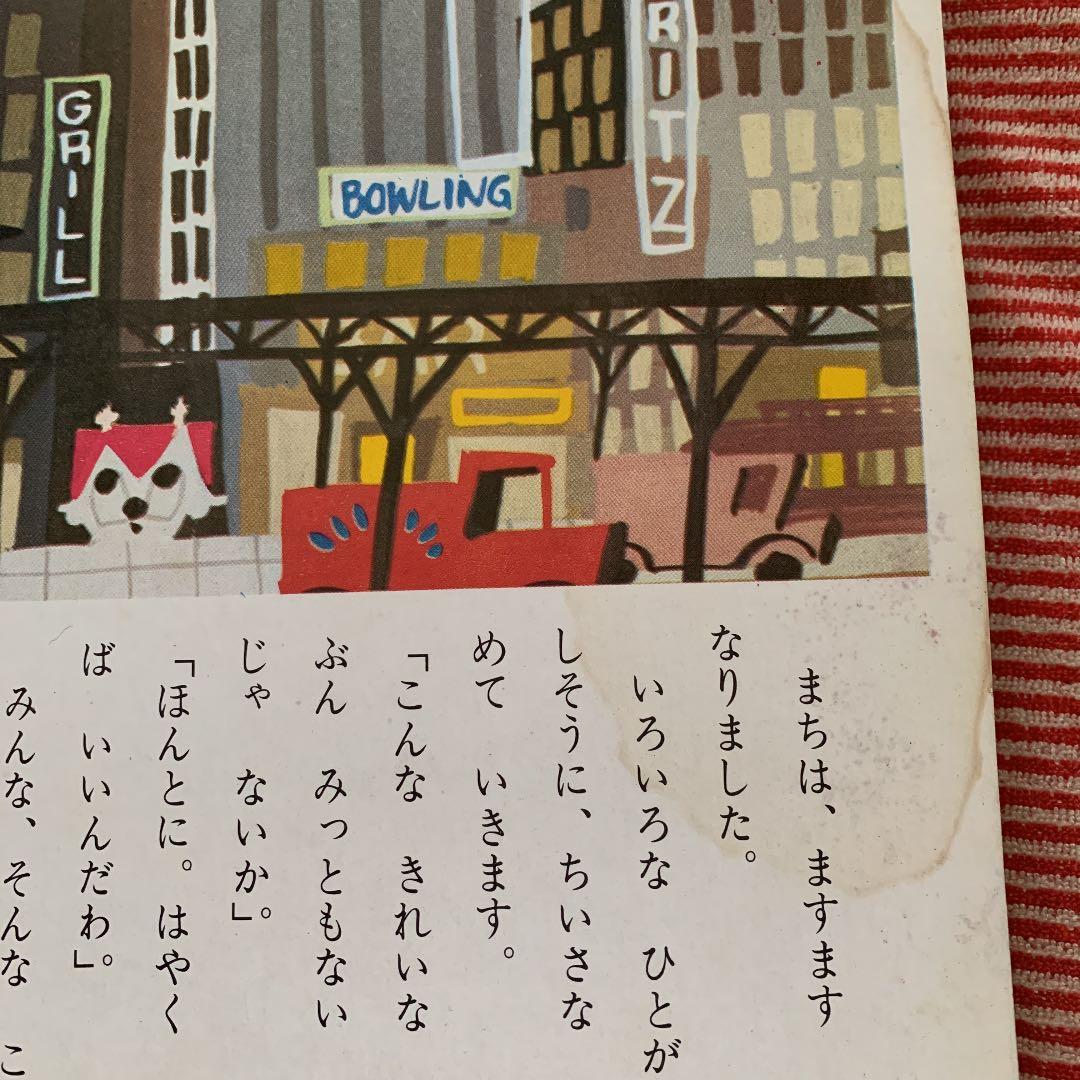 GRILL
BOWLING
RITZ
まちは、ますます
なりました。
いろいろな ひとが
しそうに、ちいさな
めて いきます。
「こんな きれいな
ぶん みっともない
じゃ ないか」。
「ほんとに。はやく
ば いいんだわ」。
みんな、そんな こ